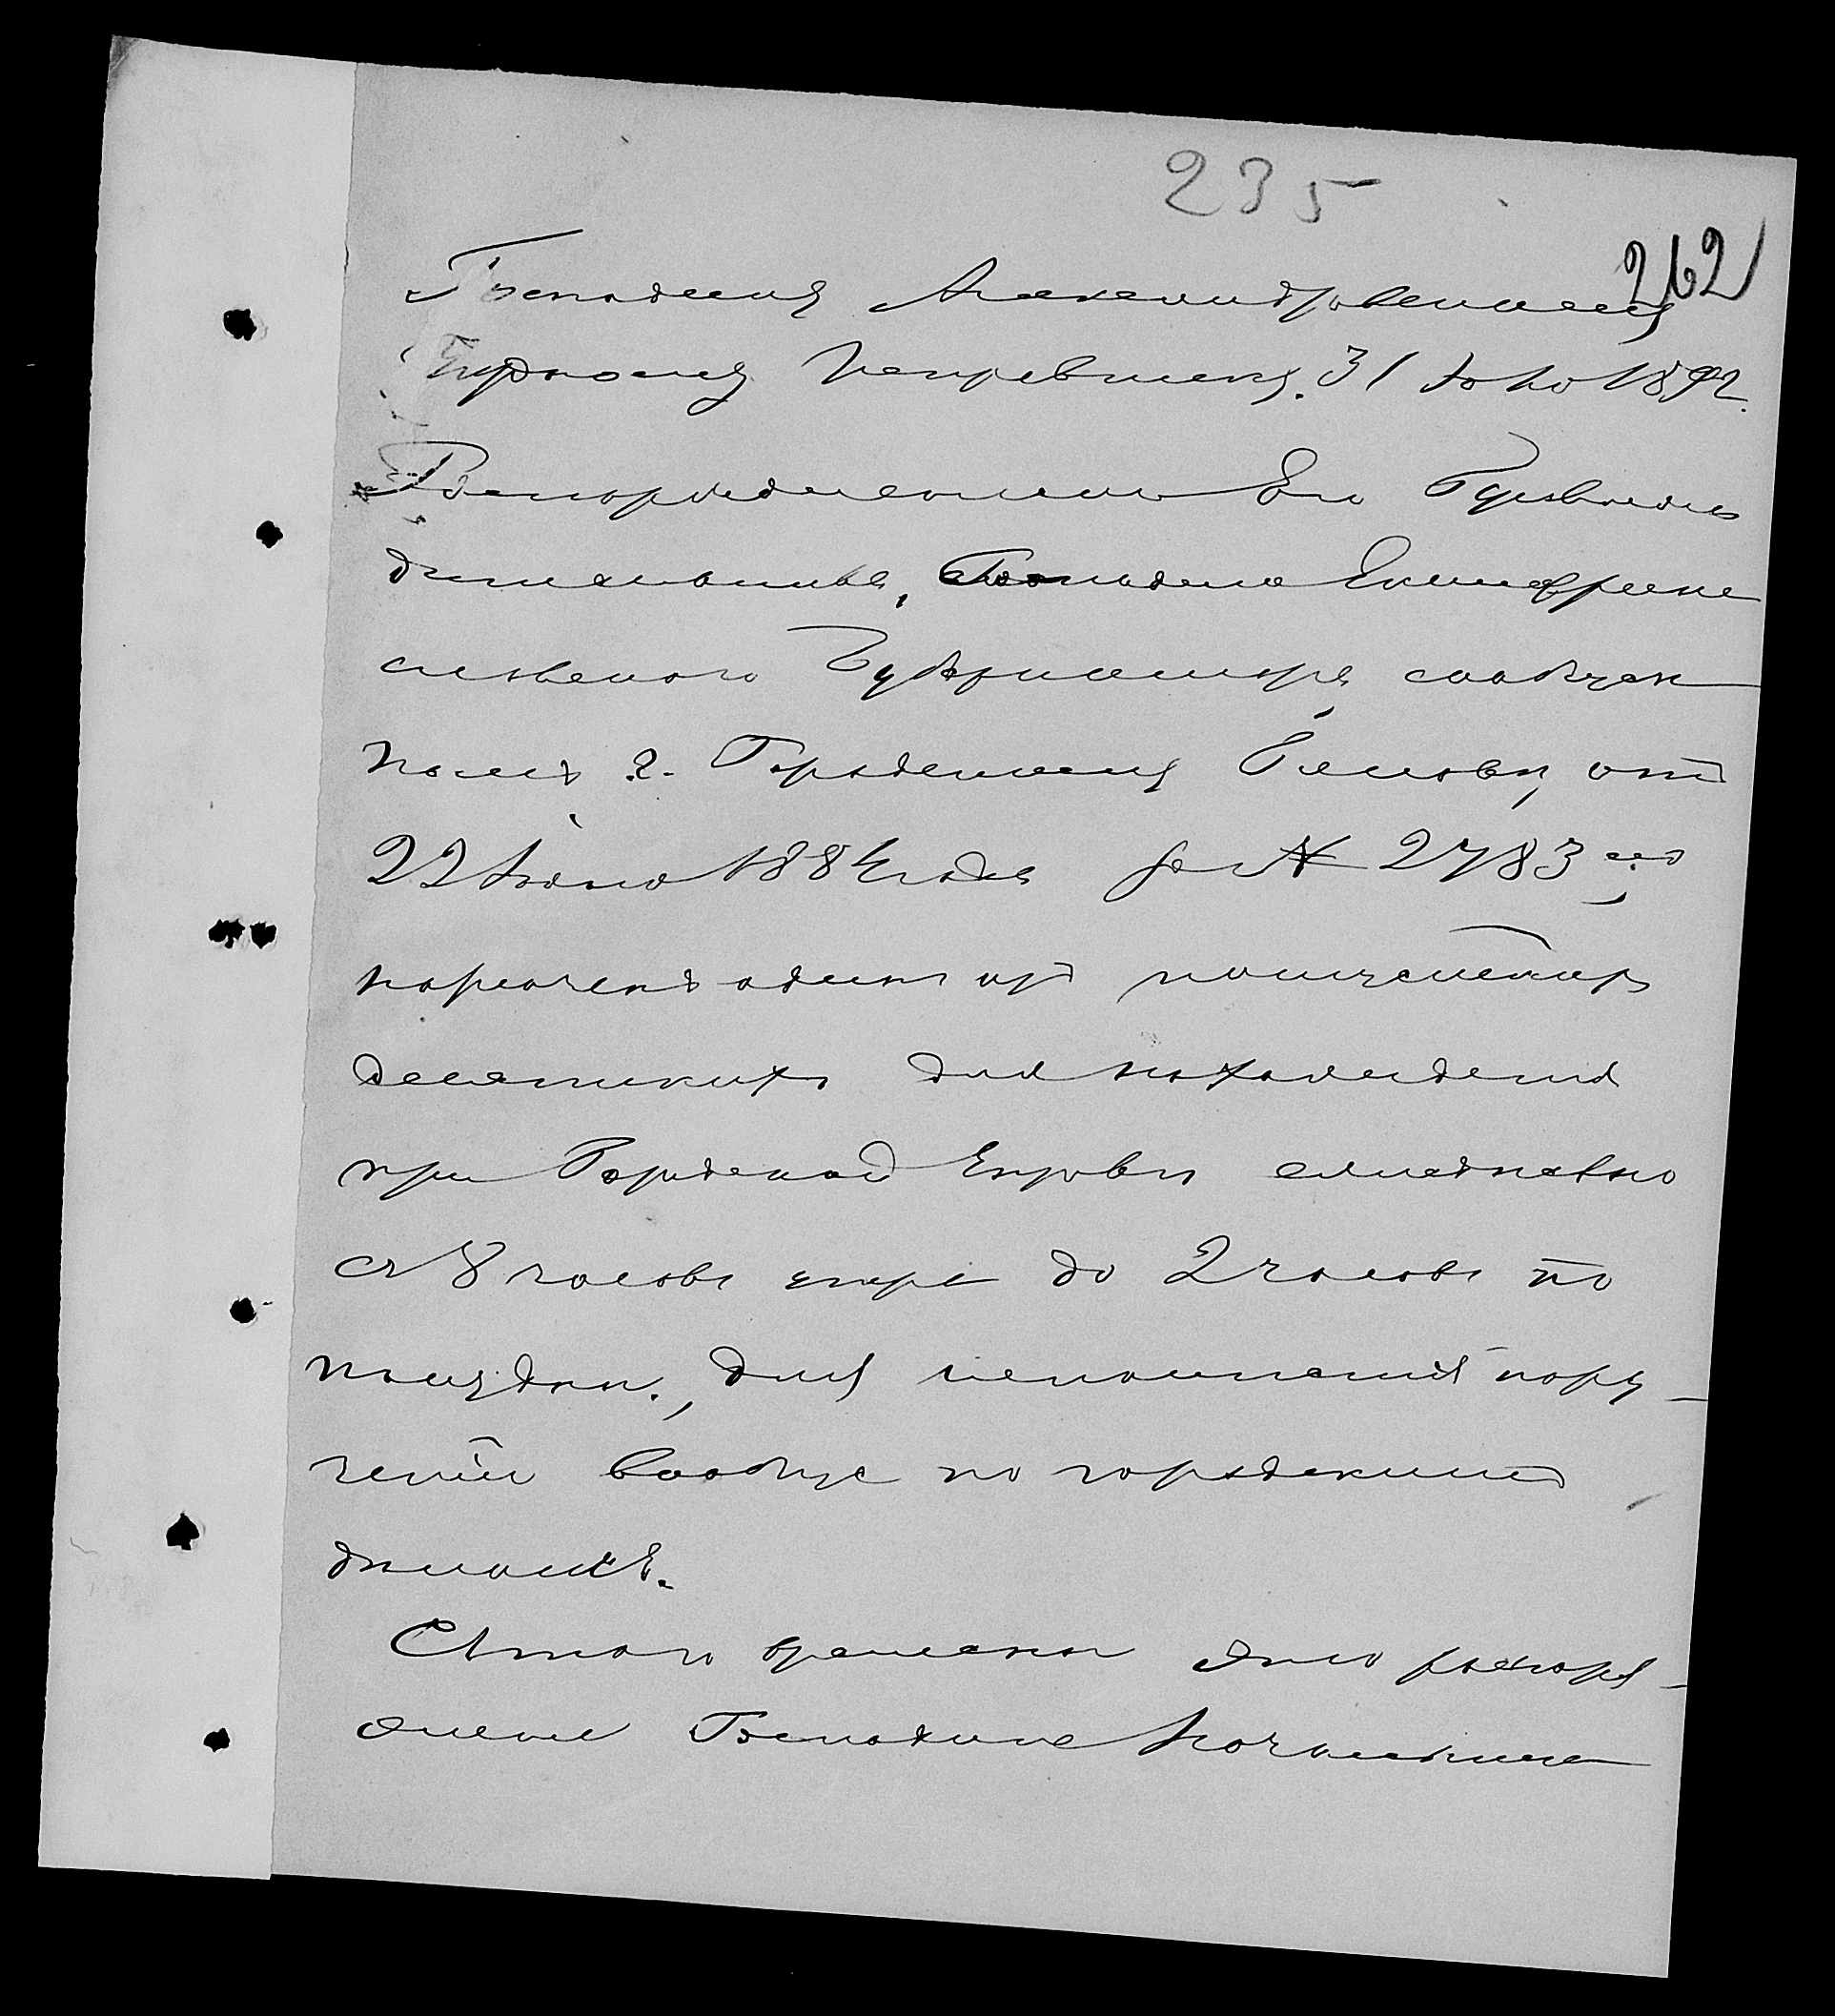 235
262
Господину Александровскому
Уѣздному Исправнику. 31 Іюля 1892.
Распоряженіемъ Его Превосходи
тельства, Господина Екатерино
славскаго Губернатора, сообщен
нымъ г. Городскому Головѣ, отъ
22 Іюня 1884 года за № 2783,
наряженъ одинъ изъ полицейскихъ
десятскихъ для нахожденія
при Городской Управѣ ежедневно
съ 8 часовъ утра до 2 часовъ по
полудни, для исполненія пору-
ченій вообще по городскимъ
дѣламъ.
Съ того времени это распоря-
женіе Господина Начальника